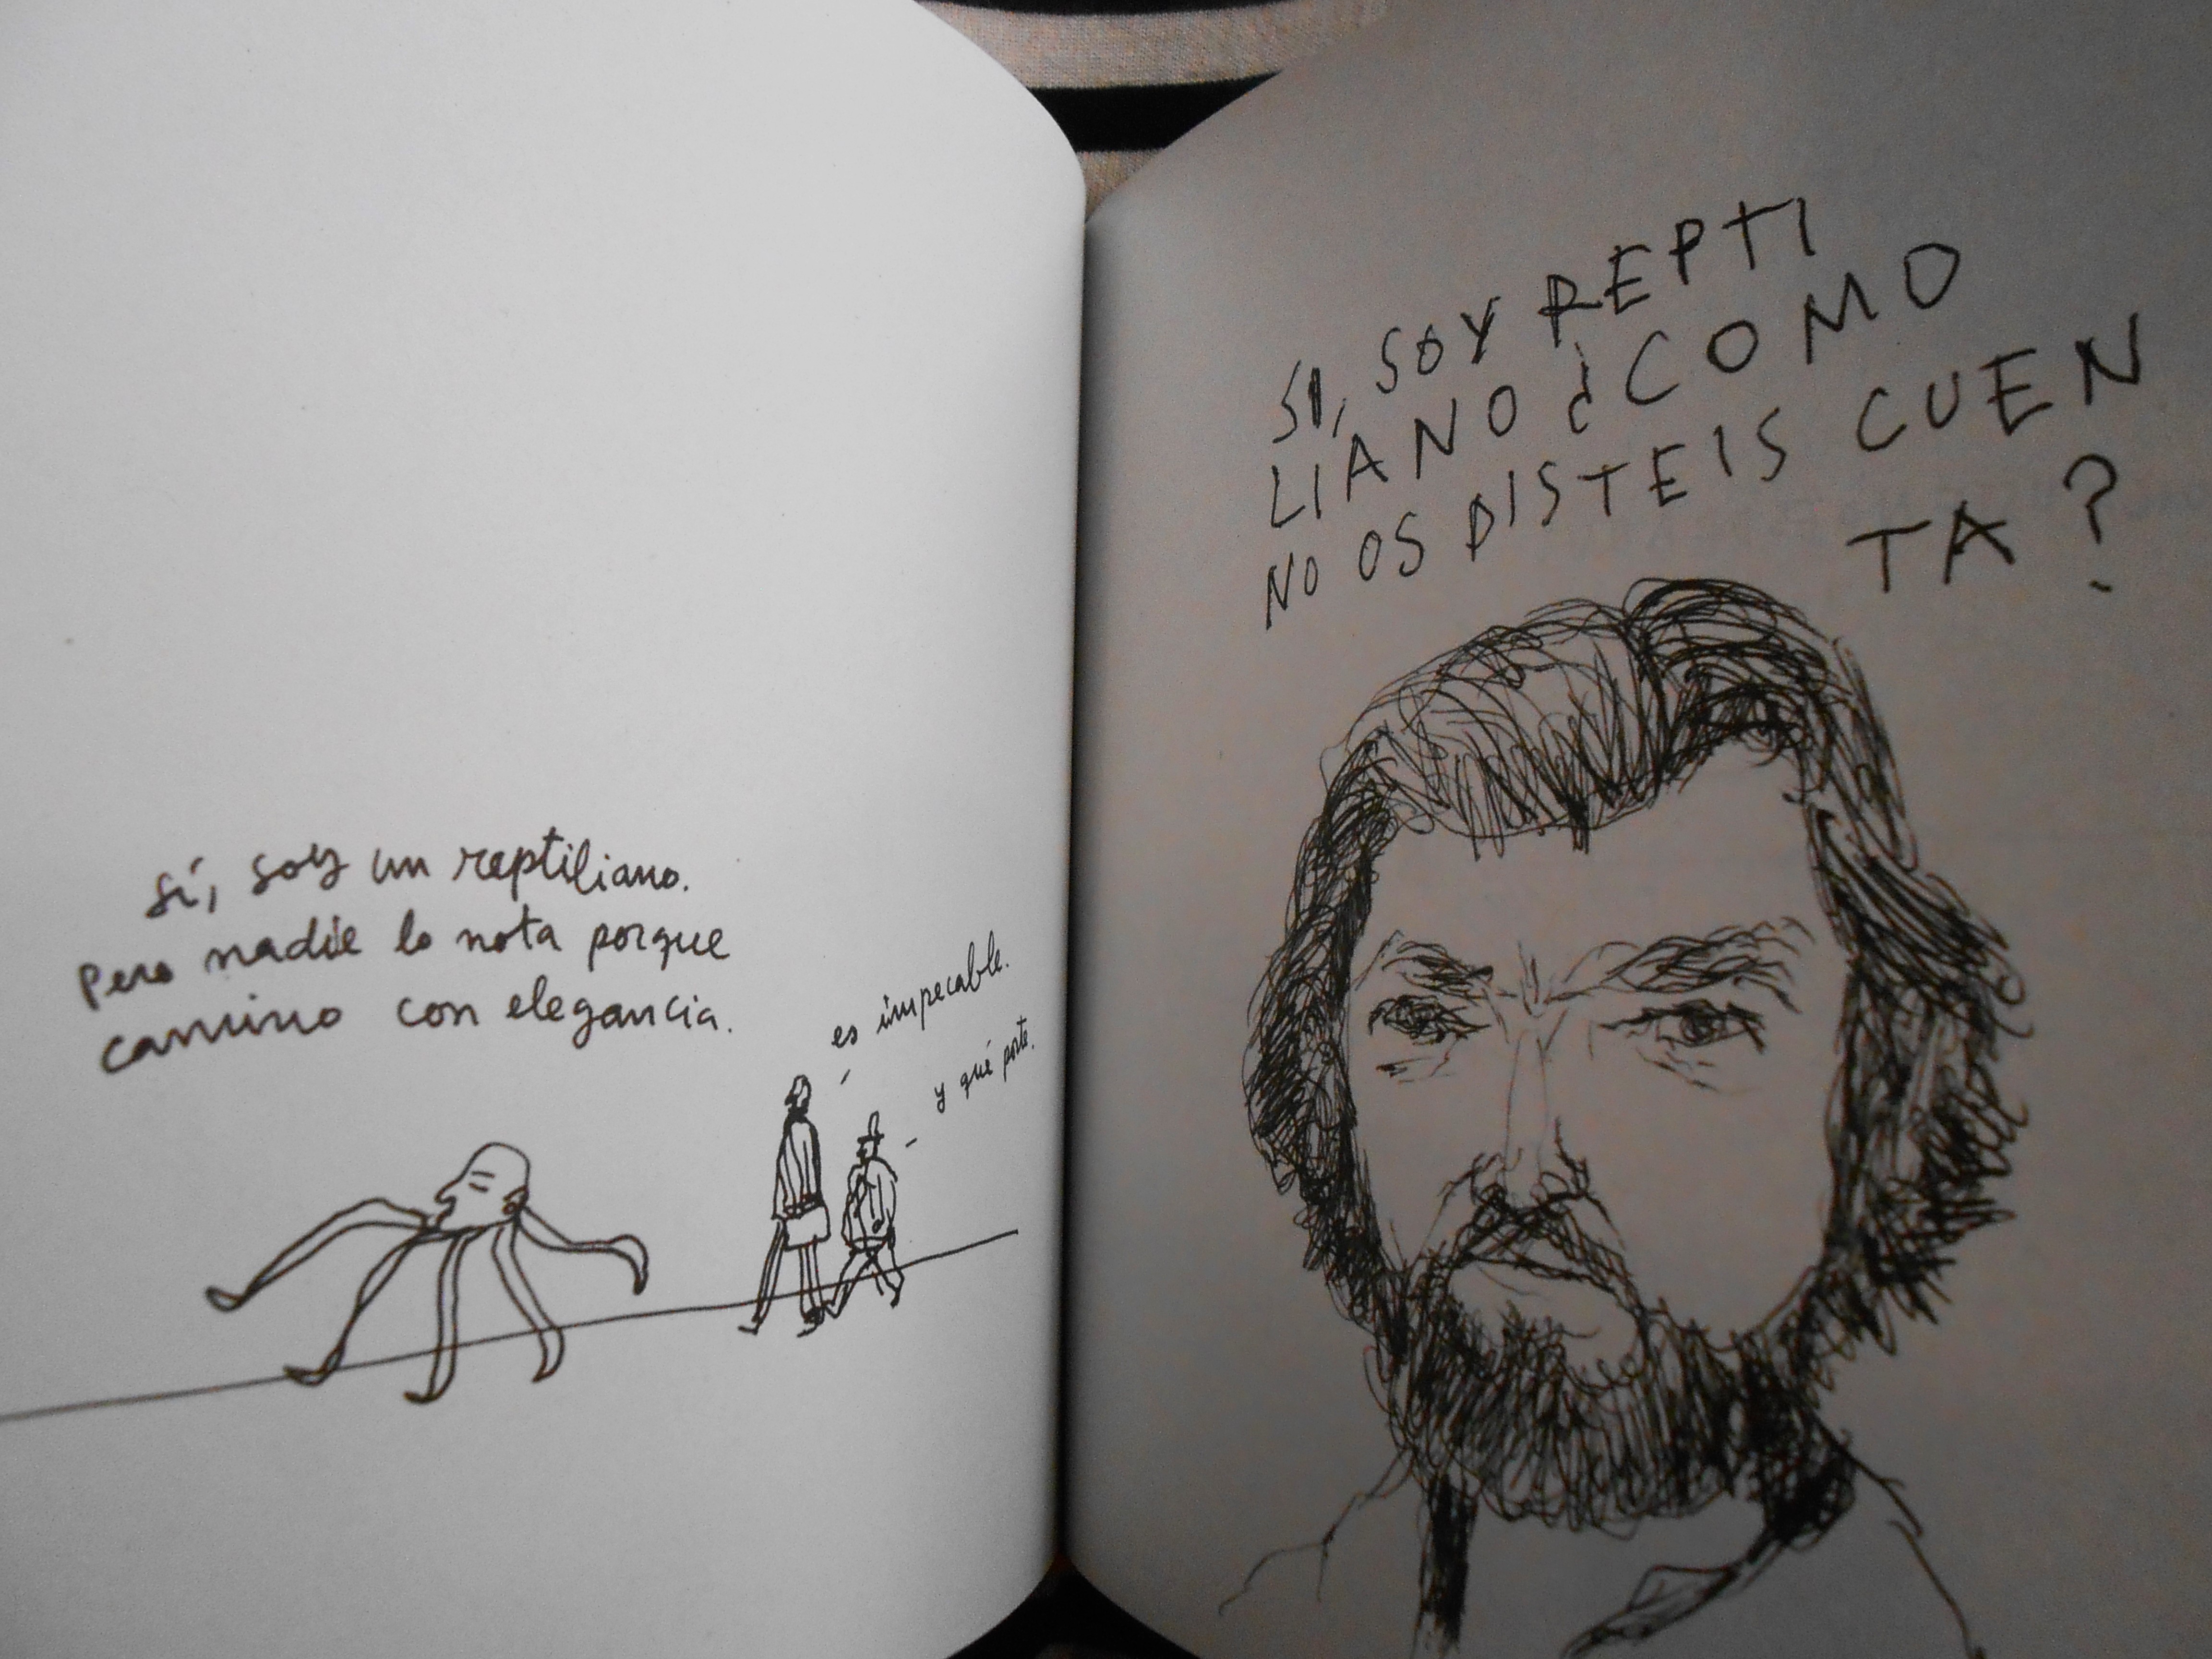 sí, soy un reptiliano.
Pero nadie lo nota porque
camino con elegancia.
es impecable.
y qué porte.
SI, SOY REPTI
LIANO ¿COMO
NO OS DISTEIS CUEN
TA?